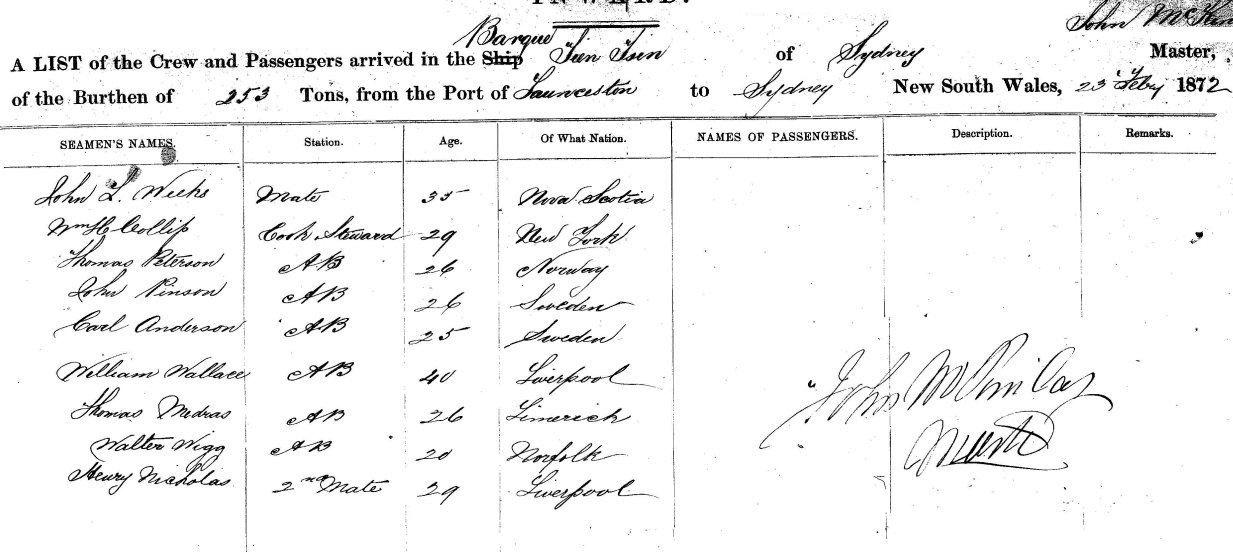 INWARD.
John McKin
Barque
A LIST of the Crew and Passengers arrived in the Ship Tien Tsin of Sydney Master,
of the Burthen of 253 Tons, from the Port of Launceston to Sydney New South Wales, 23rd Feby 1872
SEAMEN'S NAMES. Station. Age. Of What Nation. NAMES OF PASSENGERS. Description. Remarks.
John L. Weeks Mate 35 Nova Scotia
Wm H Collip Cook Steward 29 New York
Thomas Peterson AB 26 Norway
John Pinson AB 26 Sweden
Carl Anderson AB 25 Sweden
William Wallace AB 40 Liverpool
Thomas Medras AB 26 Limerick
Walter Wigg AB 20 Norfolk
Henry Nicholas 2nd Mate 29 Liverpool
John